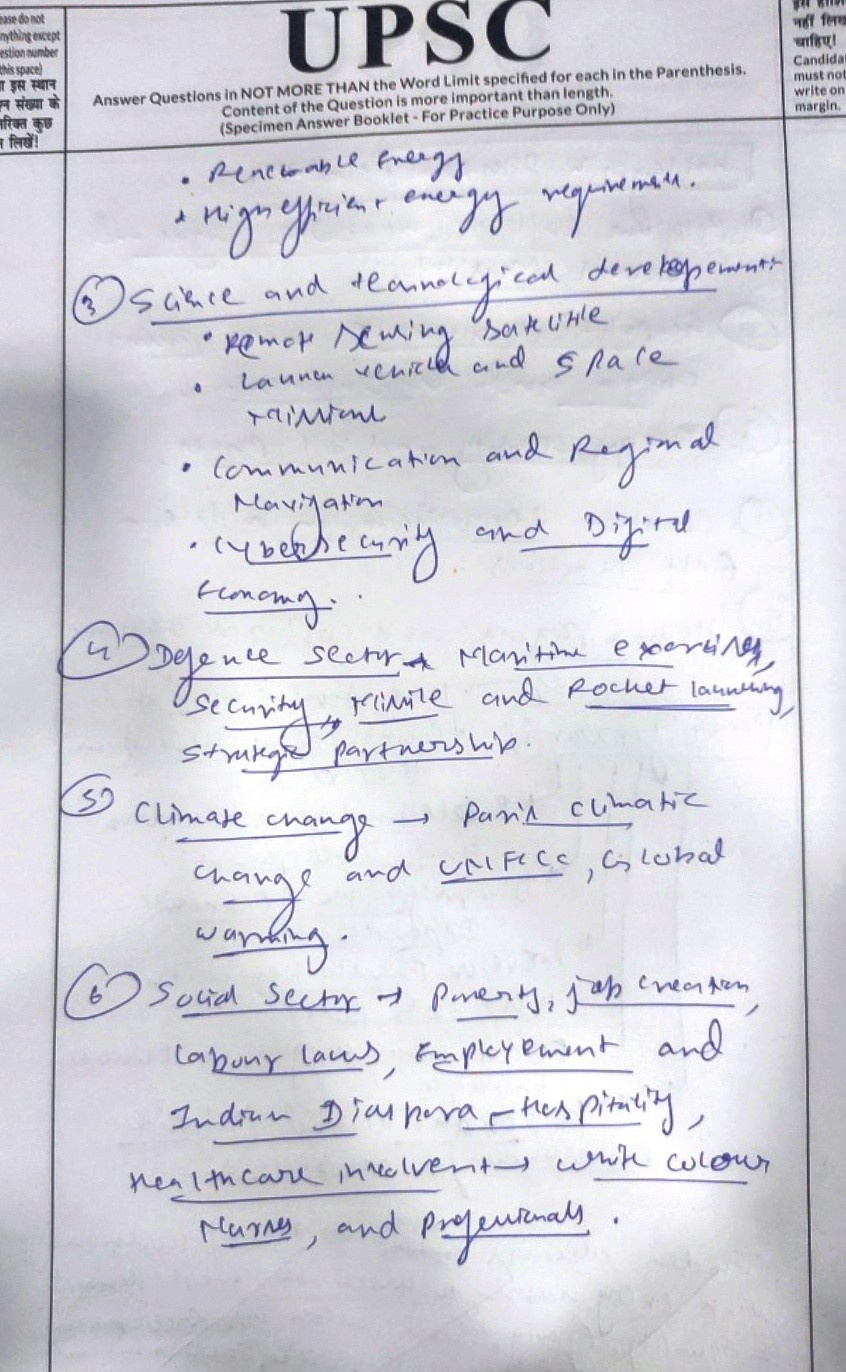 ease do not
nything except
estion number
this space)
इस स्थान
न संख्या के
रिक्त कुछ
लिखें!
UPSC
Answer Questions in NOT MORE THAN the Word Limit specified for each in the Parenthesis.
Content of the Question is more important than length.
(Specimen Answer Booklet - For Practice Purpose Only)
नहीं लिख
चाहिए!
Candida
must not
write on
margin.
• Renewable Energy
• High efficient energy requirements.
③ Science and technological developements
• Remote Sensing Satellite
• Launch vehicle and space
• Communication and Regional
Navigation
• Cybersecurity and Digital
Economy.
④ Defence sector → Maritime exercises,
Security → Missile and Rocket launching,
Strategic partnership.
⑤ Climate change → Paris climatic
change and UNFCCC, Global
warming.
⑥ Social Sector → Poverty, job creation,
Labour laws, Employement and
Indian Diaspora - Hospitality,
Healthcare involvent → white colour
Nurses, and Professionals.